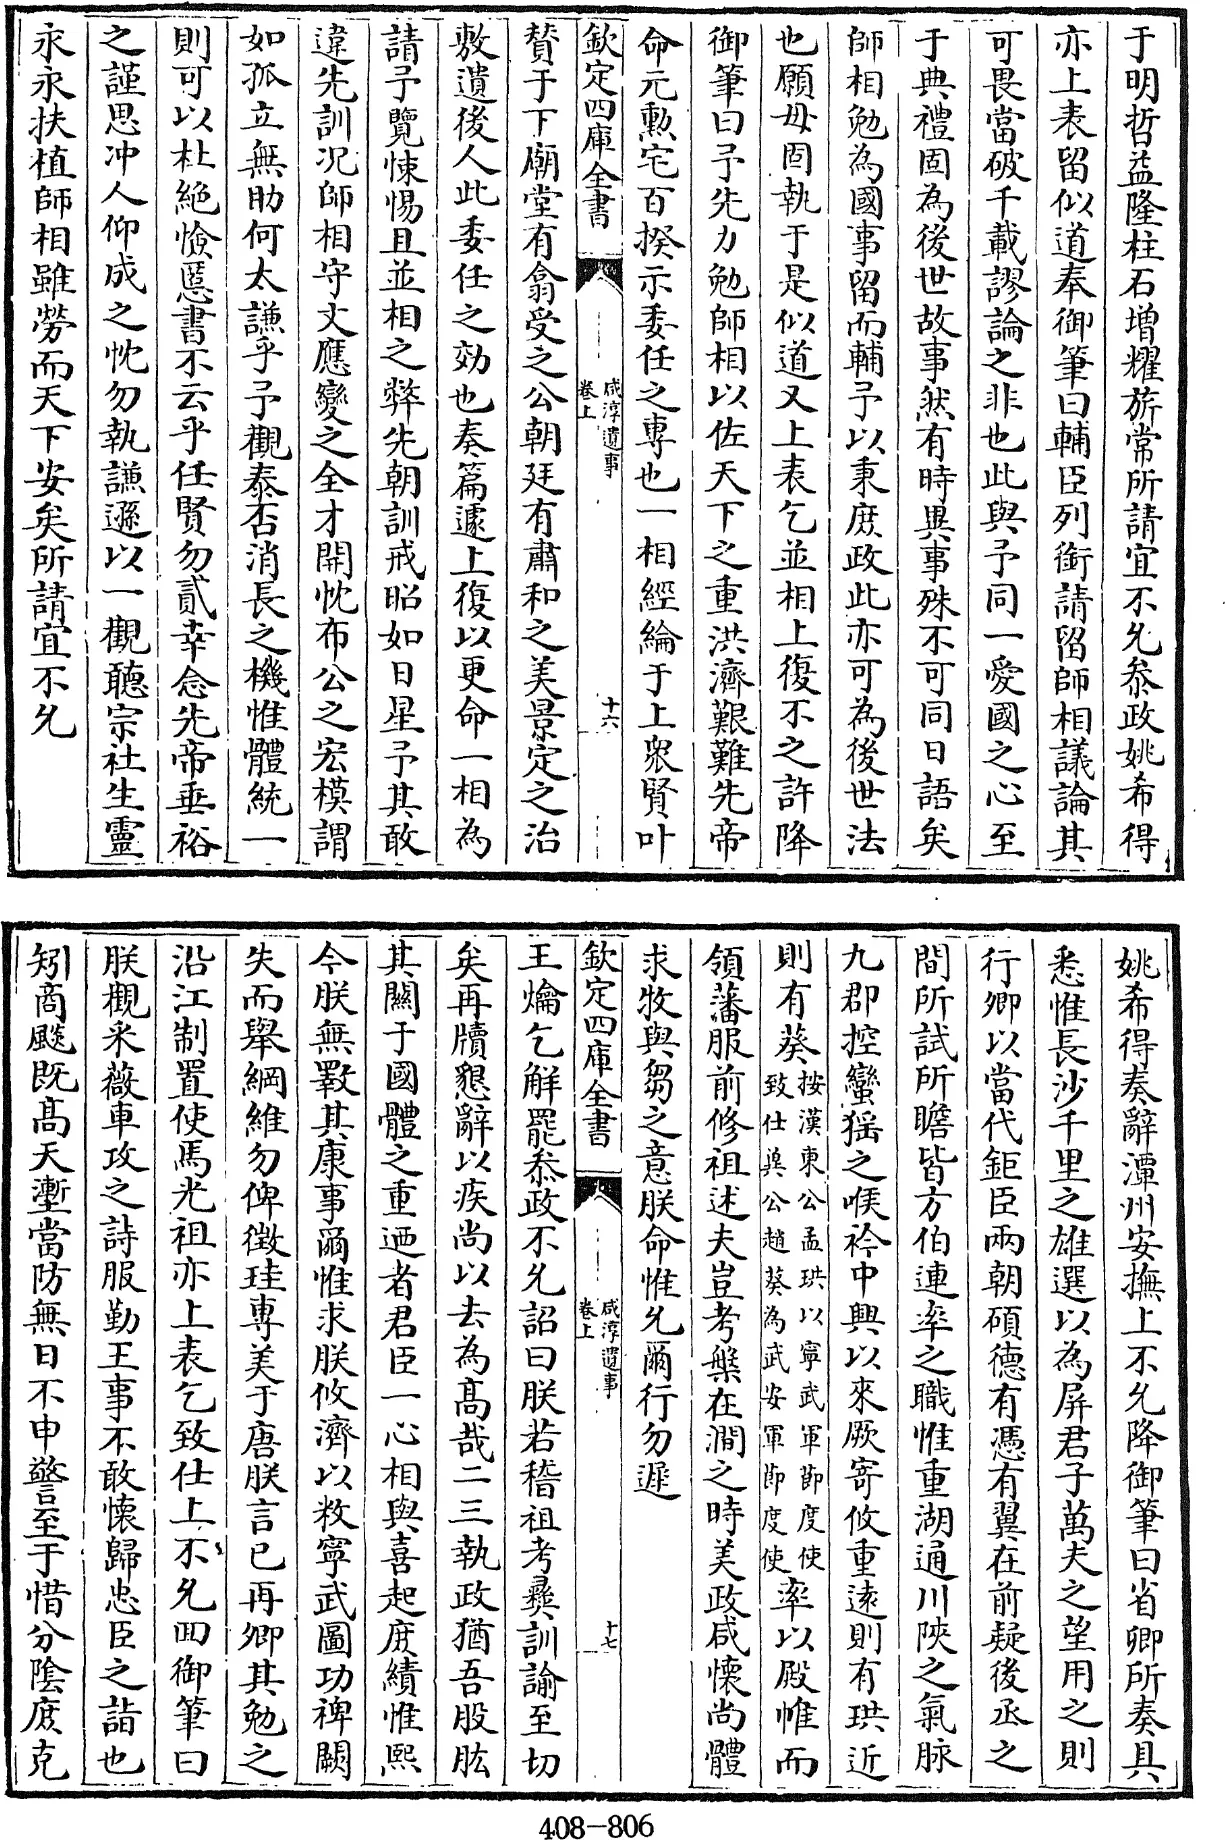 于明哲益隆柱石增耀旂常所請宜不允叅政姚希得
亦上表留似道奉御筆曰輔臣列銜請留師相議論其
可畏當破千載謬論之非也此與予同一愛國之心至
于典禮固為後世故事然有時異事殊不可同日語矣
師相勉為國事留而輔予以秉庶政此亦可為後世法
也願毋固執于是似道又上表乞並相上復不之許降
御筆曰予先力勉師相以佐天下之重洪濟艱難先帝
命元勲宅百揆示委任之專也一相經綸于上衆賢叶
欽定四庫全書
咸淳遺事
卷上
十六
贊于下廟堂有翕受之公朝廷有肅和之美景定之治
敷遺後人此委任之効也奏篇遽上復以更命一相為
請予覽悚惕且並相之弊先朝訓戒昭如日星予其敢
違先訓况師相守文應變之全才開忱布公之宏模謂
如孤立無助何太謙乎予觀泰否消長之機惟體統一
則可以杜絶憸慝書不云乎任賢勿貳幸念先帝垂裕
之謹思冲人仰成之忱勿執謙遜以一觀聽宗社生靈
永永扶植師相雖勞而天下安矣所請宜不允
姚希得奏辭潭州安撫上不允降御筆曰省卿所奏具
悉惟長沙千里之雄選以為屏君子萬夫之望用之則
行卿以當代鉅臣兩朝碩德有馮有翼在前疑後丞之
間所試所瞻皆方伯連率之職惟重湖通川陜之氣脉
九郡控蠻猺之喉衿中興以來厥寄攸重遠則有珙近
則有葵按漢東公孟珙以寧武軍節度使致仕冀公趙葵為武安軍節度使率以殿帷而
領藩服前修祖述夫豈考槃在澗之時美政咸懷尚體
求牧與芻之意朕命惟允爾行勿遲
欽定四庫全書
咸淳遺事
卷上
十七
王爚乞解罷叅政不允詔曰朕若稽祖考彞訓諭至切
矣再牘懇辭以疾尚以去為髙哉二三執政猶吾股肱
其關于國體之重迺者君臣一心相與喜起庶績惟熙
今朕無斁其康事爾惟求朕攸濟以敉寧武圖功裨闕
失而舉綱維勿俾徴珪專美于唐朕言已再卿其勉之
沿江制置使馬光祖亦上表乞致仕上不允四御筆曰
朕觀采薇車攻之詩服勤王事不敢懷歸忠臣之誼也
矧商飈既髙天塹當防無日不申警至于惜分陰庶克
408-806